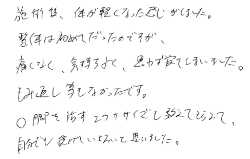 施術後、体が軽くなった感じがしました。
整体は初めてだったのですが、
痛くなく、気持ちよく、思わず寝てしまいました。
もみ返し等もなかったです。
O脚も治す コツみたいなのも教えてもらって、
自分でも続けていきたいと思いました。